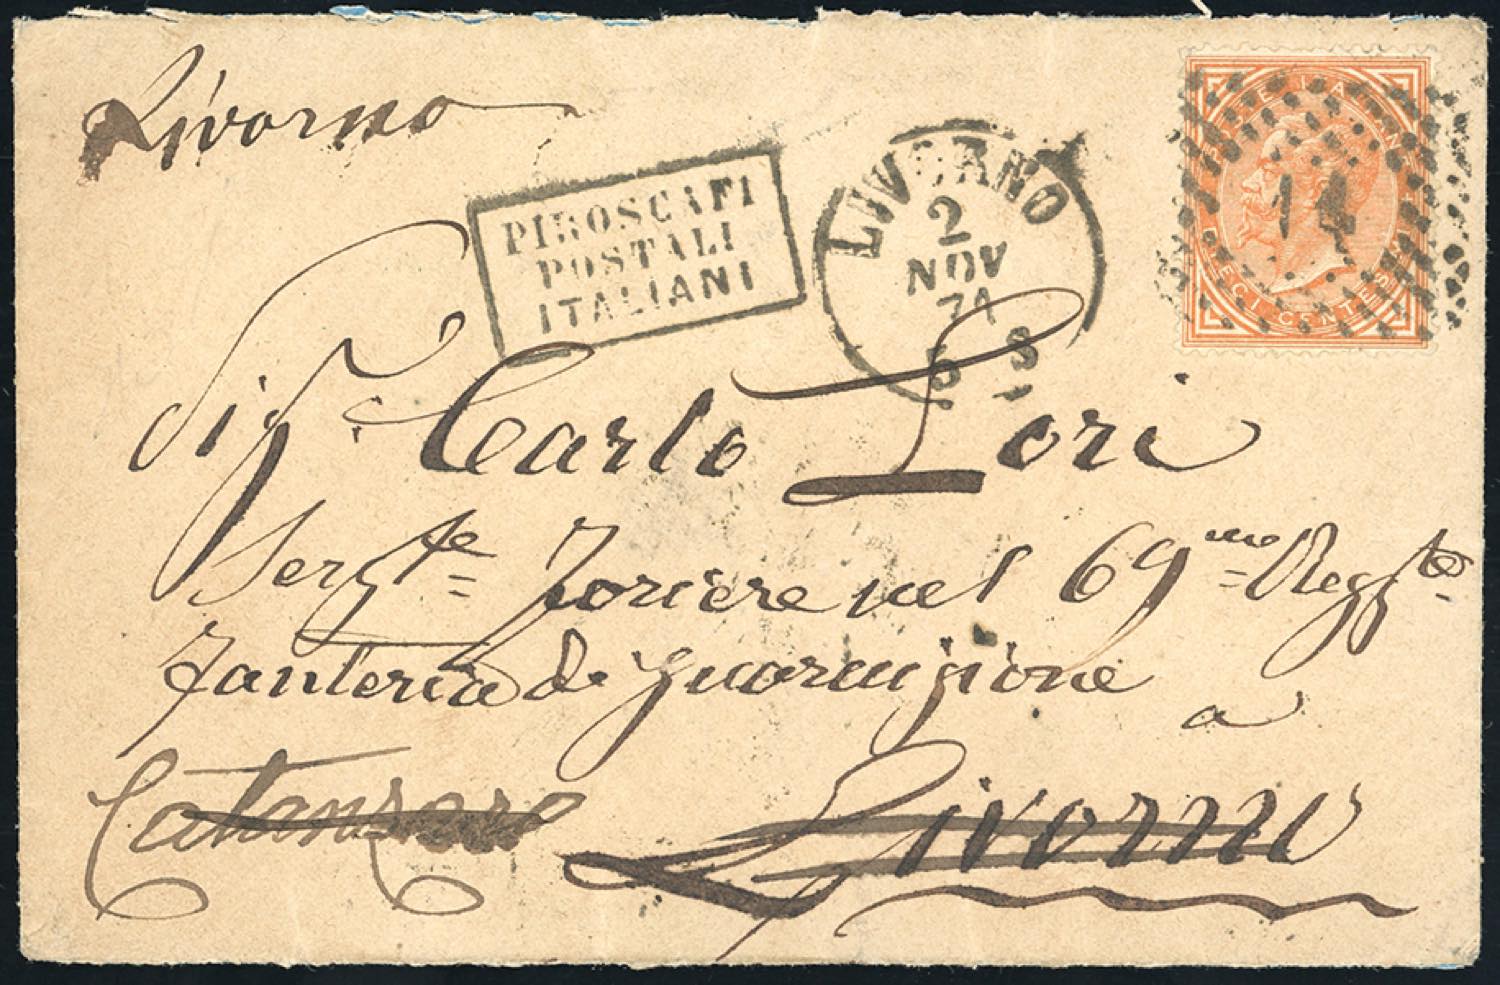 Livorno
PIROSCAFI
POSTALI
ITALIANI
LIVORNO
2
NOV
71
5 S
14
DIECI CENTES
Sigr. Carlo Lori
Sergte Foriere nel 69mo Reggto
Fanteria di guarnizione
a
Catanzaro Livorno